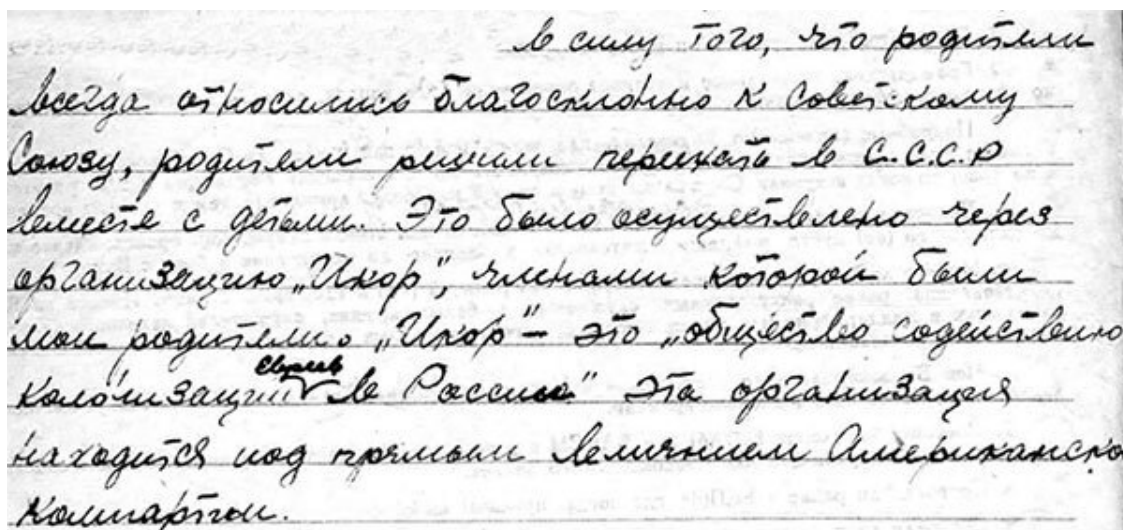 в силу того, что родители
всегда относились благосклонно к Советскому
Союзу, родители решили переехать в С.С.С.Р
вместе с детьми. Это было осуществлено через
организацию „Икор", членами которой были
мои родители. „Икор" – это „общество содействию
колонизации евреев в России" Эта организация
находится под прямым велиянием Американско
Компартии.